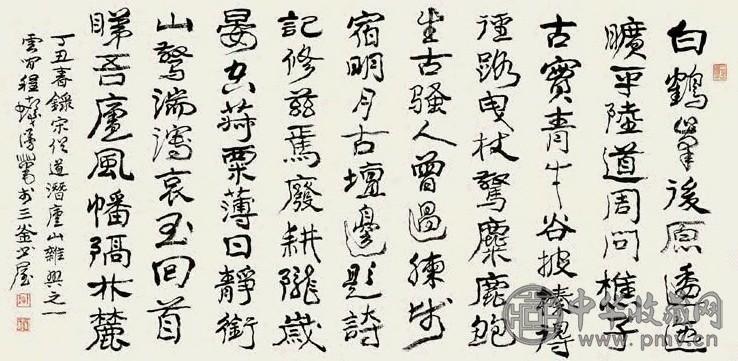 白鶴峯後原逶迤
曠平陸道周問樵子
實青牛谷披榛得
徑路曳杖驚麋鹿鮑
生古騷人曾過煉師
宿明月古壇邊題詩
記修茲焉廢耕隴歲
晏蒔粟薄日靜銜
山驚湍瀉哀玉回首
睇吾廬風幡隔林麓
丁丑春錄宋僧道潛廬山雜興之一
雲間程於三釜書屋
中华收藏网
www.pmv.cn